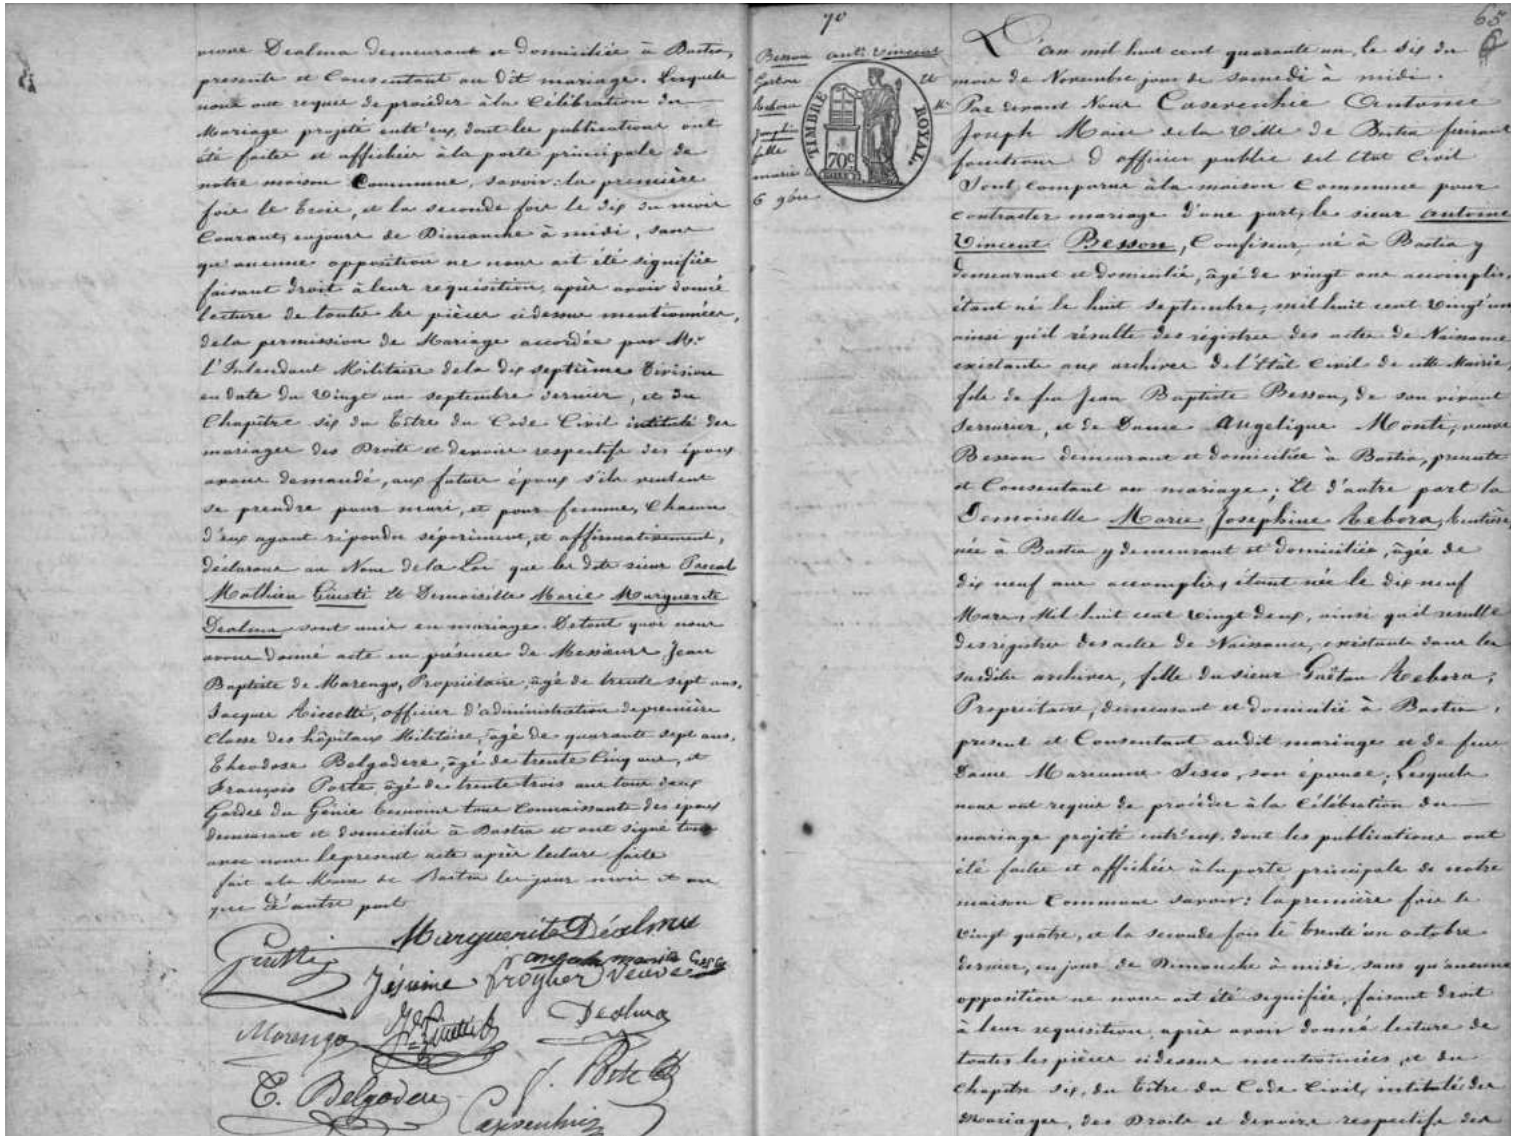 veuve Dealma demeurant et domiciliée à Bastia,
presente et Consentant au dit mariage. Lesquels
nous ont requis de procéder à la Célébration du
Mariage projeté entr'eux, dont les publications ont
été faites et affichées à la porte principale de
notre maison Commune, savoir: la première
fois le trois, et la seconde fois le dix du mois
Courant, enjours de Dimanche à midi, sans
qu'aucune opposition ne nous ait été signifiée
faisant droit à leur requisition, après avoir donné
lecture de toutes les pièces cidessus mentionnées,
dela permission de Mariage accordée par Mr
l'Intendant Militaire dela dix septième Division
en date du Vingt un septembre dernier, et du
Chapître six du titre du Code Civil intitulé des
mariages des Droits et devoirs respectifs des époux
avons demandé, aux futurs époux s'ils veulent
se prendre pour mari, et pour femme, Chacun
d'eux ayant répondu séparément, et affirmativement,
déclarons au Nom dela Loi que les dits sieur Pascal
Mathieu Giusti et Demoiselle Marie Marguerite
Dealma sont unis en mariage. Detout quoi nous
avons donné acte en présence de Messieurs Jean
Baptiste de Marengo, Propriétaire, âgé de trente sept ans,
Jacques officier d'administration depremière
Classe des hôpitaux Militaires, âgé de quarante sept ans,
Theodose Belgodere, âgé de trente Cinq ans, et
François Porte, âgé de trente trois ans tous deux
Gardes du Génie temoins tous Connaissants des epoux
demeurant et domiciliés à Bastia et ont signé tous
avec nous lepresent acte après lecture faite
fait a la Mairie de Bastia les jour mois et an
que d'autre part
Giusti Marguerite Déalma
Veuve
Marengo Dealma
T. Belgodere J. Porte
Casevechie
70
65
Besson Antne Vincent
et
Josephine
fille
mariés
6 9bre
TIMBRE ROYAL
70c
L'an mil huit cent quarante un, le six du
mois de Novembre jour de samedi à midi.
Par devant Nous Casevechie Antoine
Joseph Maire dela Ville de Bastia faisant
fonctions d'officier public del'Etat Civil
Sont comparus àla maison Commune pour
contracter mariage d'une part, le sieur Antoine
Vincent Besson, Confiseur, né à Bastia y
demeurant et domicilié, âgé de vingt ans accomplis,
étant né le huit septembre, mil huit cent Vingt un
ainsi qu'il résulte des régistres des actes de Naissance
existants aux archives del'Etât Civil de cette Mairie,
fils de feu Jean Baptiste Besson, de son vivant
Serrurier, et de Dame Angelique Monti, veuve
Besson demeurant et domiciliée à Bastia, presente
et Consentant au mariage; Et d'autre part la
Demoiselle Marie Josephine Rebora, Rentière,
née à Bastia y demeurant et domiciliée, âgée de
dix neuf ans accomplis, étant née le dix neuf
Mars, Mil huit cent vingt deux, ainsi qu'il resulte
des registres des actes de Naissance, existants dans les
susdites archives, fille du sieur Gaëtan Rebora,
Propriétaire, demeurant et domicilié à Bastia,
présent et Consentant audit mariage et de feue
Dame Marianne Sisco, son épouse; Lesquels
nous ont requis de procéder à la Célébration du
mariage projeté entr'eux, dont les publications ont
été faites et affichées àla porte principale de notre
maison Commune savoir: la première fois le
vingt quatre, et la seconde fois le trente un octobre
dernier, en jour de Dimanche à midi, sans qu'aucune
opposition ne nous ait été signifiée, faisant droit
à leur requisition, après avoir donné lecture de
toutes les pièces cidessus mentionnées, et du
Chapitre six, du titre du Code Civil, intitulé des
Mariages, des Droits et devoirs respectifs des